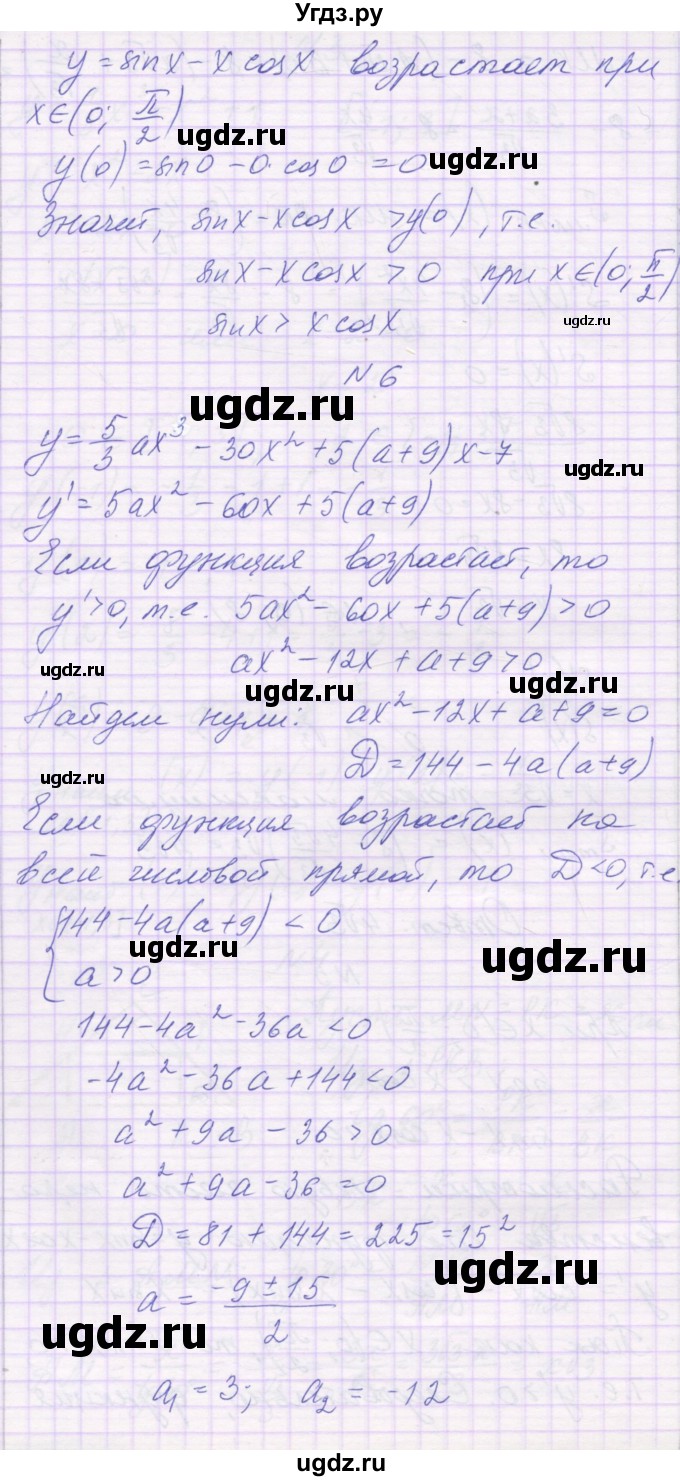 Угдз.ру
y = sin x - x cos x возрастает при
x∈(0; π/2)
ugdz.ru
y(0) = sin 0 - 0 · cos 0 = 0
ugdz.ru
Значит, sin x - x cos x > y(0), т.е.
sin x - x cos x > 0 при x∈(0; π/2)
ugdz.ru
sin x > x cos x
N 6
ugdz.ru
y = 5/3 ax³ - 30x² + 5(a+9)x - 7
ugdz.ru
y' = 5ax² - 60x + 5(a+9)
ugdz.ru
Если функция возрастает, то
y' > 0, т.е. 5ax² - 60x + 5(a+9) > 0
ax² - 12x + a + 9 > 0
ugdz.ru ugdz.ru ugdz.ru
Найдем нули: ax² - 12x + a + 9 = 0
D = 144 - 4a(a+9)
ugdz.ru
Если функция возрастает на
всей числовой прямой, то D < 0, т.е.
{ 144 - 4a(a+9) < 0
a > 0
ugdz.ru ugdz.ru
144 - 4a² - 36a < 0
-4a² - 36a + 144 < 0
a² + 9a - 36 > 0
a² + 9a - 36 = 0
D = 81 + 144 = 225 = 15²
ugdz.ru
a = (-9 ± 15)/2
ugdz.ru
a₁ = 3; a₂ = -12
ugdz.ru